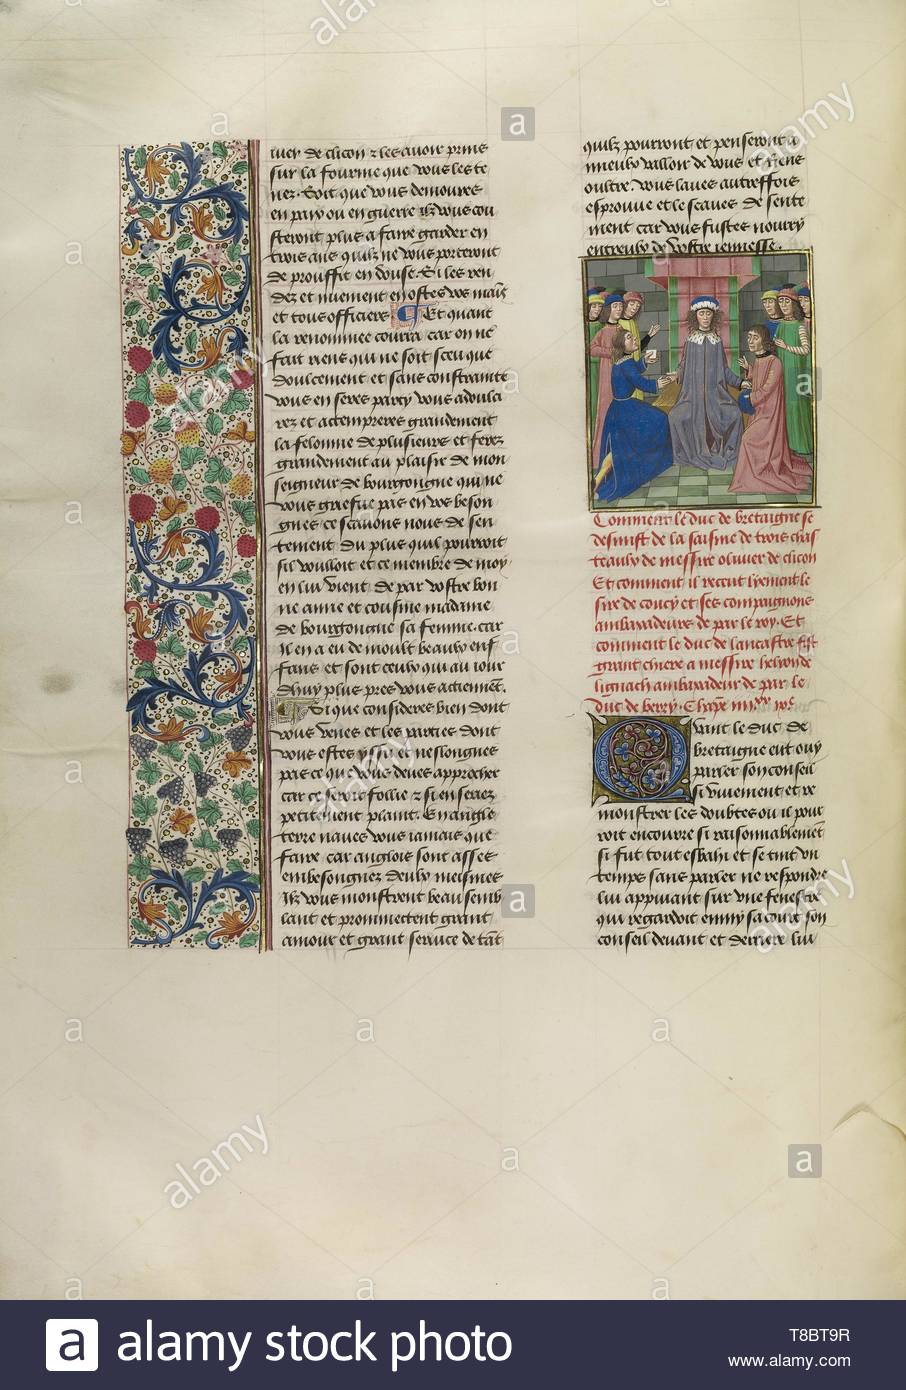 luer de clicon et les auoir prins
sur la fourme que vous les te
nez. Soit que vous demoures
en paix ou en guerre ilz vous cou
steront plus a faire garder en
trois ans quilz ne vous porteront
de prouffit en douse. Si les ren
dez et nuement en ostes vos mains
et tous officiers Et quant
la renommee courra car on ne
fait riens qui ne soit sceu que
doulcement et sans constrainte
vous en seres party vous adoulci
rez et attempreres grandement
la felonnie de plusieurs et ferez
grandement au plaisir de mon
seigneur de bourgongne qui ne
vous griefue pas en vos beson
gnes ce scauons nous de sen
tement du plus quil pourroit
sil voulloit et ce membre de moy
en lui vient de par vostre bon
ne amie et cousine madame
de bourgongne sa femme. car
Il en a eu de moult beaulx enf
fans et sont ceulx qui au iour
dhuy plus pres vous actiennent.
Si que consideres bien dont
vous venes et les parties dont
vous estes yssu et neslongies
pas ce que vous deues approcher
car ce seroit follie et si en seriez
petitement plaint. En angle
terre naues vous iamais que
faire car anglois sont asses
embesongnez deulx meismes
Ilz vous monstrent beau semb
lant et prommettent grant
amour et grant seruice de tant
quilz pourront et penseront a
mieulx valloir de vous et riens
oultre. vous laues autreffois
esprouue et le scaues de sente
ment car vous fustes nourry
entreulx de vostre ieunesse.
Comment le duc de bretaigne se
desmist de la saisine de trois chas
teaulx de messire oliuier de clicon
Et comment il recut lyement le
sire de coucy et ses compaignons
ambaxadeurs de par le roy. Et
comment le duc de lancastre fist
grant chiere a messire helyon de
lignach ambaxadeur de par le
duc de berry. Chapitre
Quant le duc de
bretaigne eut ouy
parler son conseil
si viuement et re
monstrer les doubtes ou il pour
roit encourre si raisonnablement
si fut tout esbahi et se tint vn
temps sans parler ne respondre
lui appuiant sur vne fenestre
qui regardoit emmy sa court son
conseil deuant et derriere lui
a alamy stock photo
T8BT9R
www.alamy.com